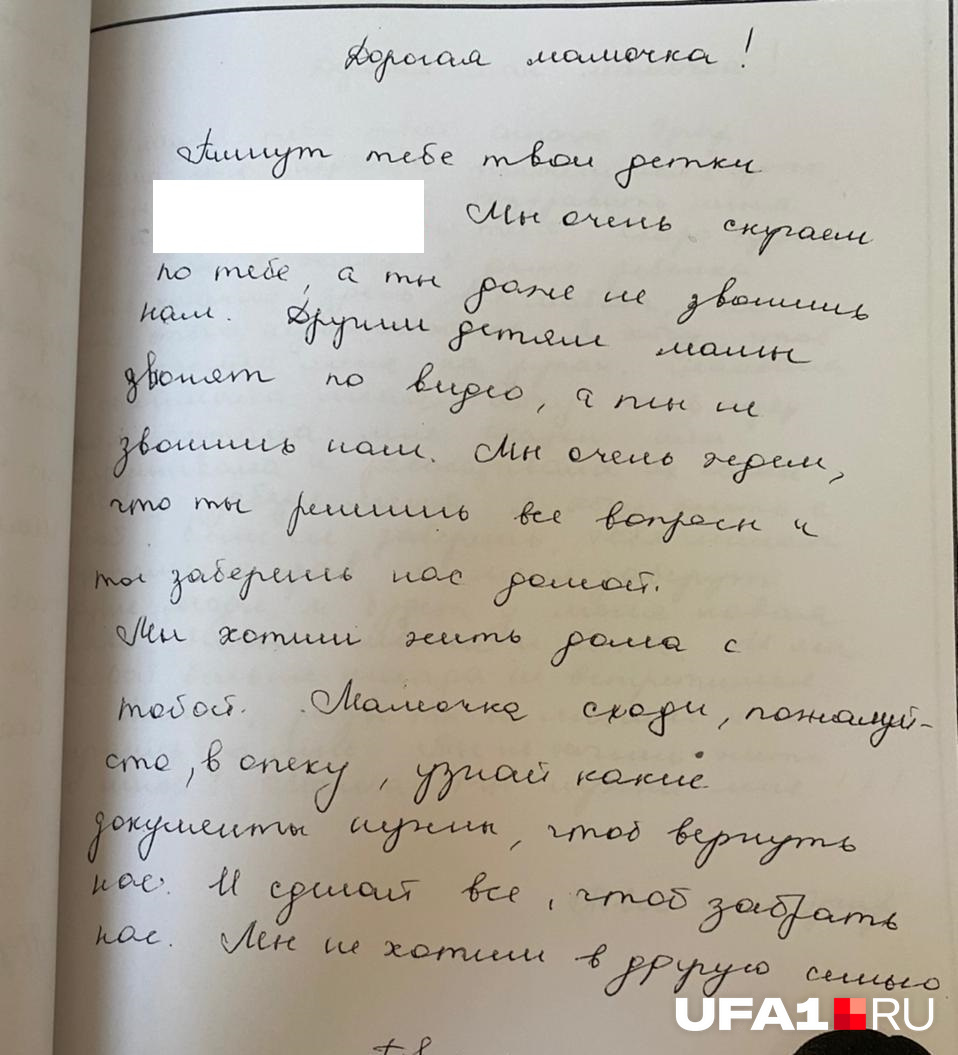 Дорогая мамочка!
Пишут тебе твои детки
Мы очень скучаем
по тебе, а ты даже не звонишь
нам. Другим детям мамы
звонят по видео, а ты не
звонишь нам. Мы очень ждем,
что ты решишь все вопросы и
ты заберешь нас домой.
Мы хотим жить дома с
тобой. Мамочка сходи, пожалуй-
ста, в опеку, узнай какие
документы нужны, чтоб вернуть
нас. И сделай все, чтоб забрать
нас. Мы не хотим в другую семью
UFA1.RU